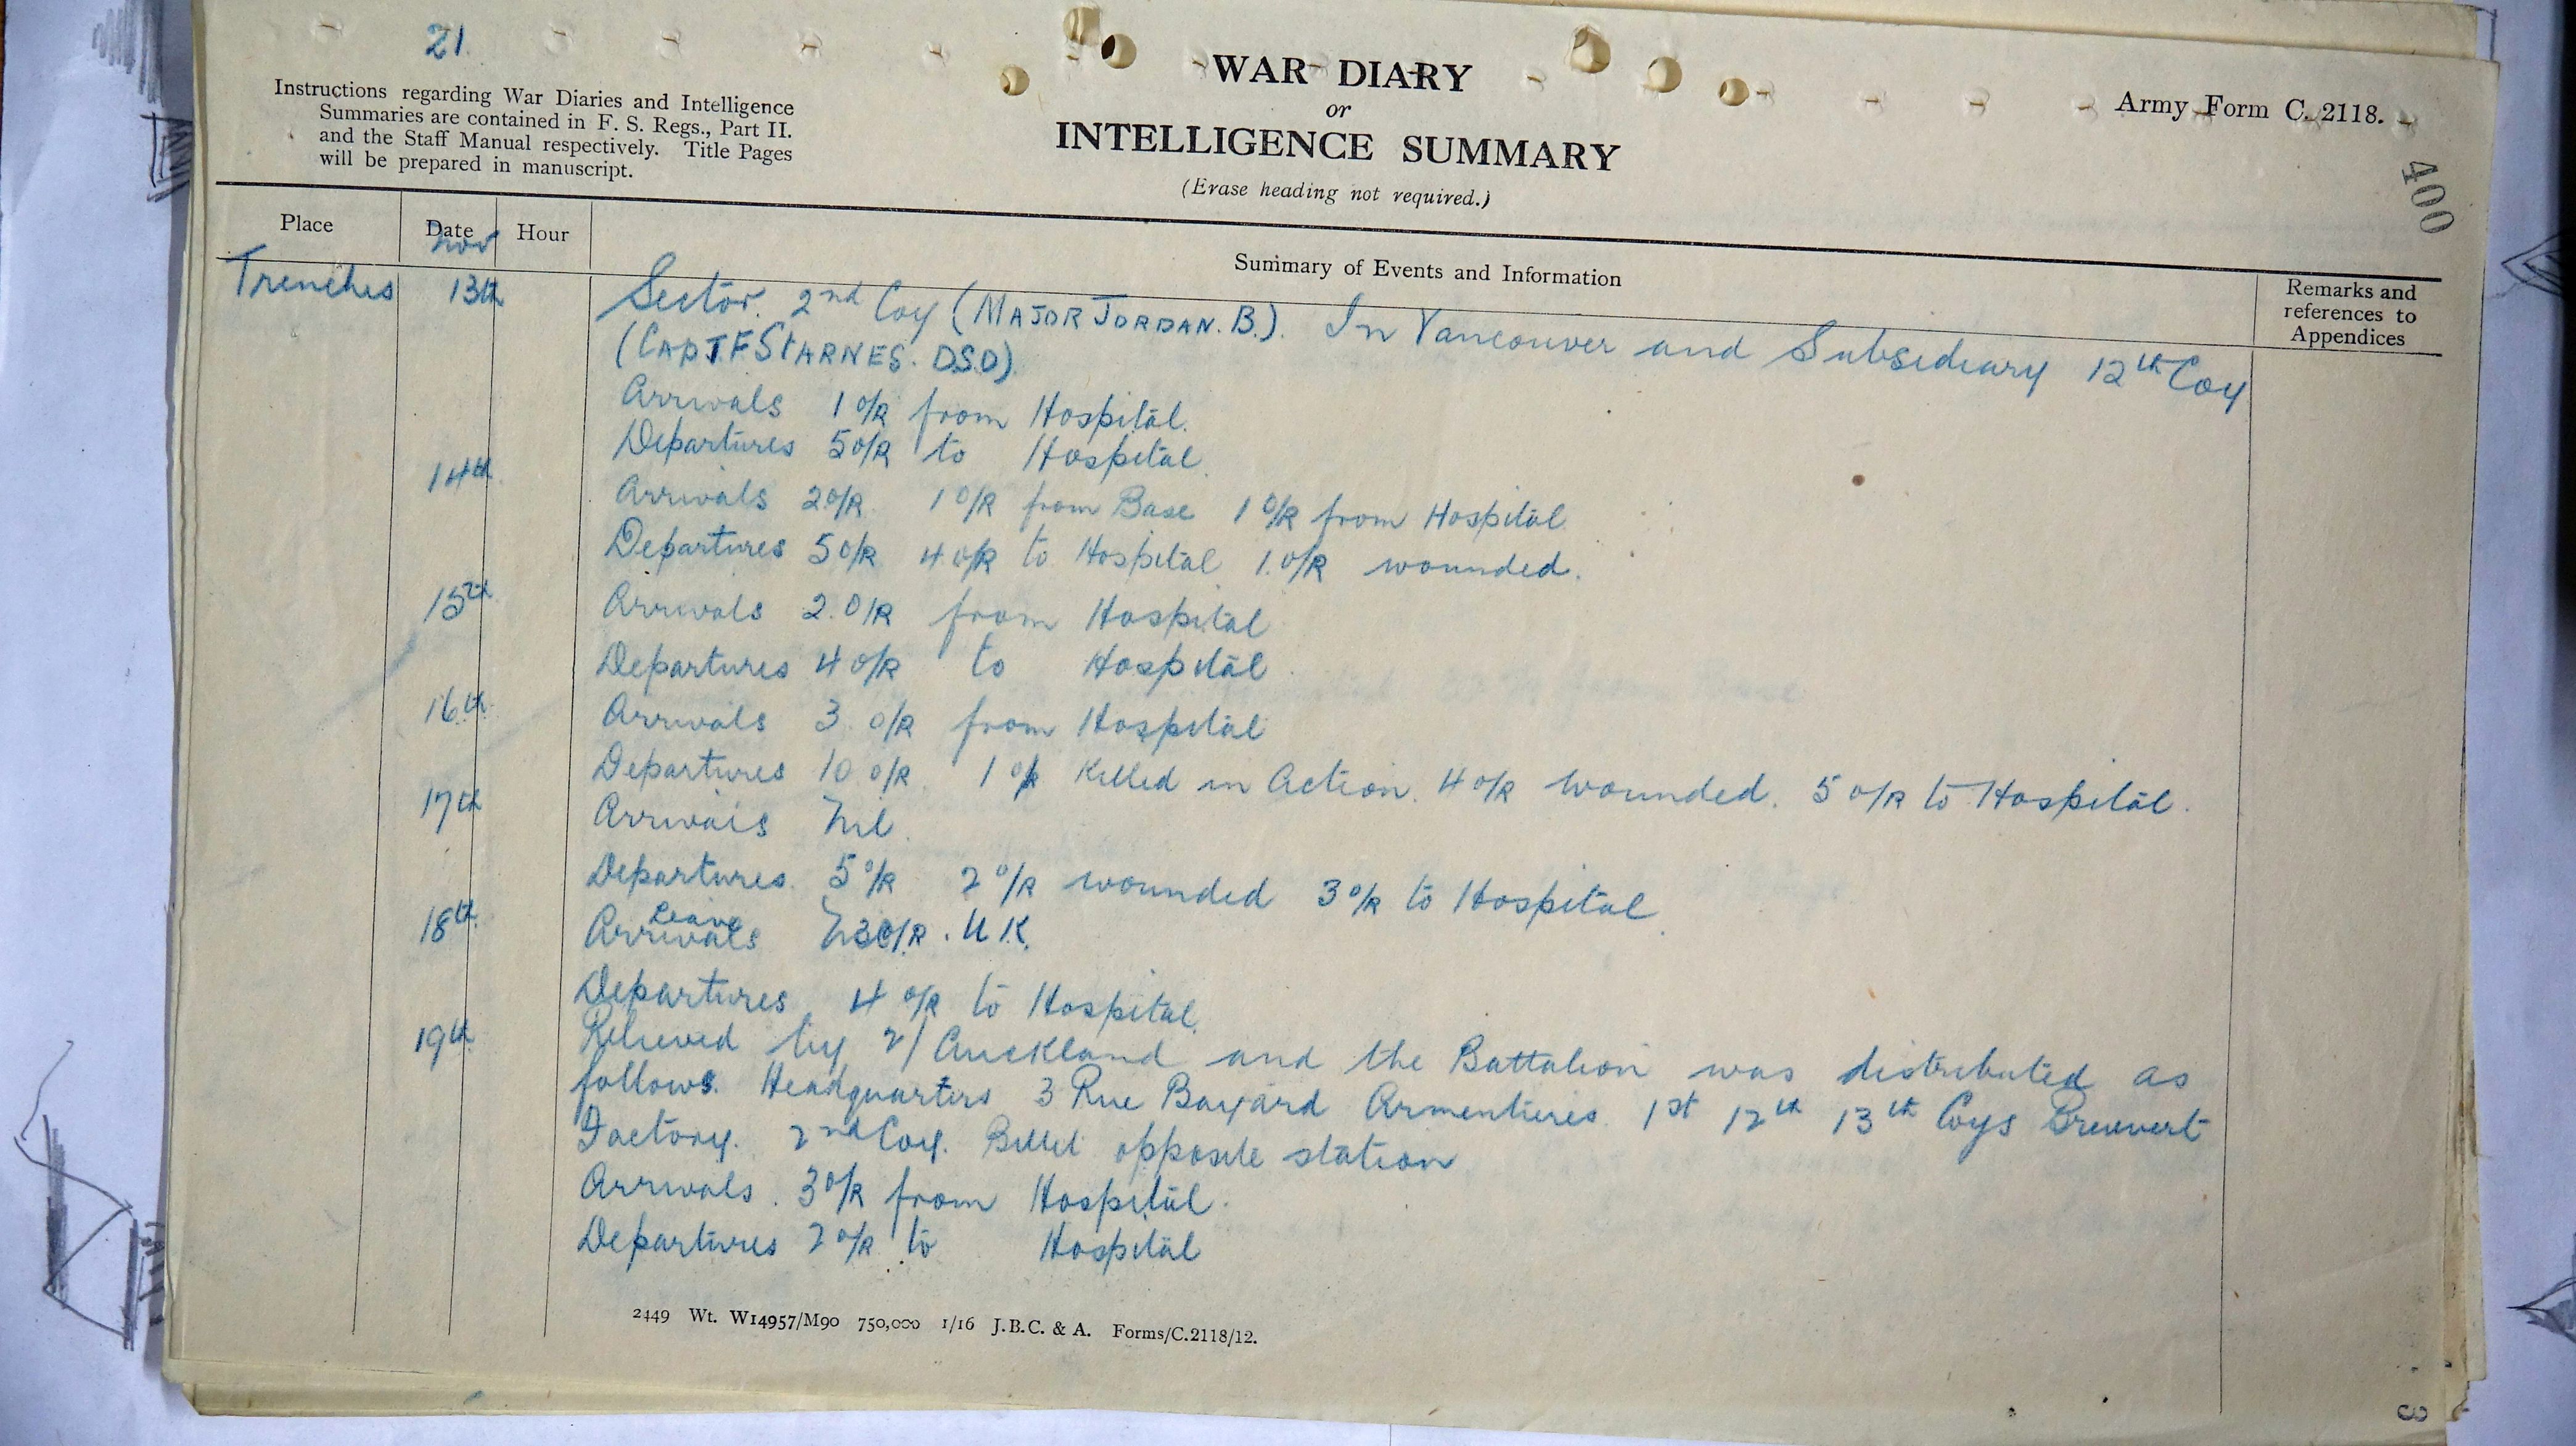 21.
Instructions regarding War Diaries and Intelligence
Summaries are contained in F. S. Regs., Part II.
and the Staff Manual respectively. Title Pages
will be prepared in manuscript.
WAR DIARY
or
INTELLIGENCE SUMMARY
(Erase heading not required.)
Army Form C. 2118.
400
Place Date Hour Summary of Events and Information Remarks and references to Appendices
Nov
Trenches 13th Sector. 2nd Coy (MAJOR JORDAN. B.). In Vancouver and Subsidiary 12th Coy
(CAPT F STARNES. DSO)
Arrivals 1 O/R from Hospital.
Departures 5 O/R to Hospital.
14th Arrivals 2 O/R 1 O/R from Base 1 O/R from Hospital
Departures 5 O/R 4 O/R to Hospital 1. O/R wounded.
15th Arrivals 2. O/R from Hospital
Departures 4 O/R to Hospital
16th Arrivals 3 O/R from Hospital
Departures 10 O/R 1 O/R Killed in Action. 4 O/R wounded. 5 O/R to Hospital.
17th Arrivals Nil.
Departures. 5 O/R 2 O/R wounded 3 O/R to Hospital
Leave
18th Arrivals 3 O/R. U.K.
Departures 4 O/R to Hospital.
19th Relieved by 2/Auckland and the Battalion was distributed as
follows. Headquarters 3 Rue Bayard Armentieres 1st 12th 13th Coys
Factory. 2nd Coy. Billet opposite station
Arrivals. 3 O/R from Hospital.
Departures 2 O/R to Hospital
2449 Wt. W14957/M90 750,000 1/16 J.B.C. & A. Forms/C.2118/12.
3